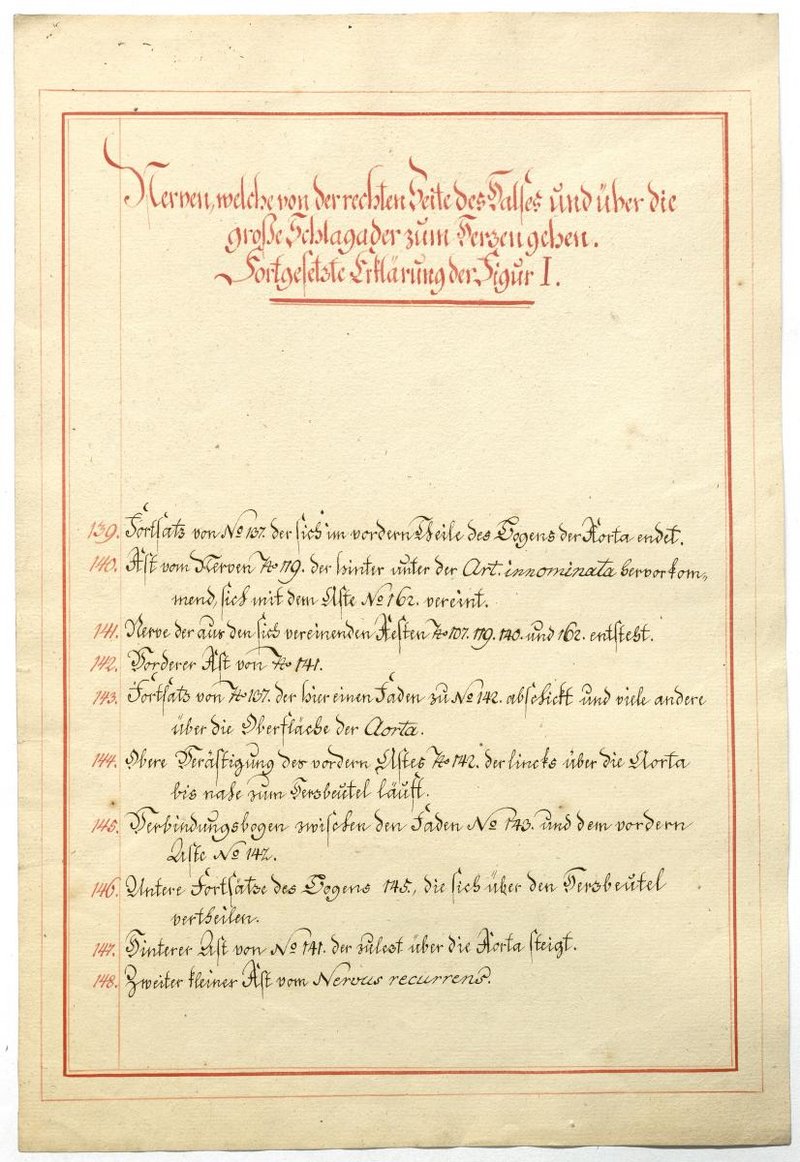 Nerven, welche von der rechten Seite des Halses und über die
große Schlagader zum Herzen gehen.
Fortgesetzte Erklärung der Figur I.
139. Fortsatz von No 137. der sich im vordern Theile des Bogens der Aorta endet.
140. Ast vom Nerven No 119. der hinter unter der Art. innominata hervorkom„
mend, sich mit dem Aste No 162. vereint.
141. Nerve der aus den sich vereinenden Aesten No 107. 119. 140. und 162. entsteht.
142. Vorderer Ast von No 141.
143. Fortsatz von No 137. der hier einen Faden zu No 142. abschickt und viele andere
über die Oberfläche der Aorta.
144. Obere Verästigung des vordern Astes No 142. der lincks über die Aorta
bis nahe zum Herzbeutel läuft.
145. Verbindungsbogen zwischen den Faden No 143. und dem vordern
Aste No 142.
146. Untere Fortsätze des Bogens 145., die sich über den Herzbeutel
vertheilen.
147. Hinterer Ast von No 141. der zulezt über die Aorta steigt.
148. Zweiter kleiner Ast vom Nervus recurrens.